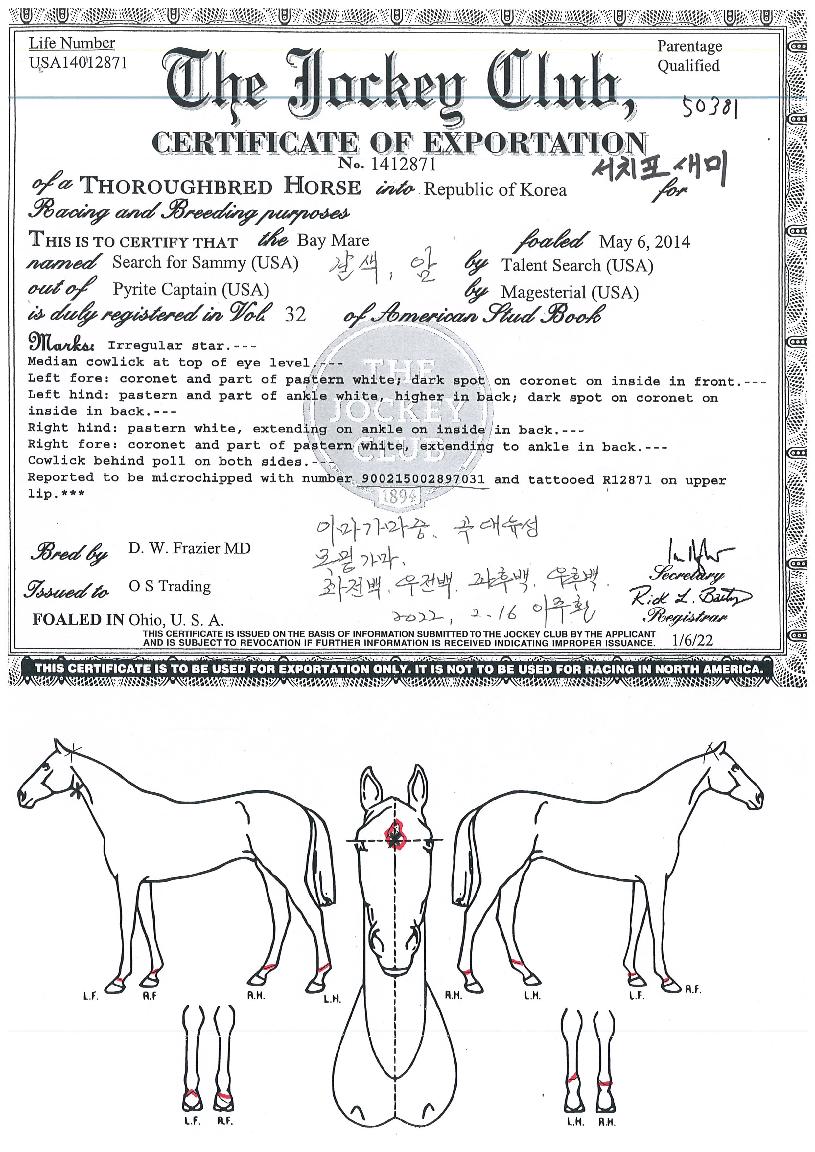 Life Number
USA14012871
Parentage
Qualified
The Jockey Club,
50381
CERTIFICATE OF EXPORTATION
No. 1412871
서치포새미
of a THOROUGHBRED HORSE into Republic of Korea for
Racing and Breeding purposes
THIS IS TO CERTIFY THAT the Bay Mare foaled May 6, 2014
named Search for Sammy (USA) 갈색, 암 by Talent Search (USA)
out of Pyrite Captain (USA) by Magesterial (USA)
is duly registered in Vol. 32 of American Stud Book
Marks: Irregular star.---
Median cowlick at top of eye level.---
Left fore: coronet and part of pastern white; dark spot on coronet on inside in front.---
Left hind: pastern and part of ankle white, higher in back; dark spot on coronet on
inside in back.---
Right hind: pastern white, extending on ankle on inside in back.---
Right fore: coronet and part of pastern white, extending to ankle in back.---
Cowlick behind poll on both sides.---
Reported to be microchipped with number 900215002897031 and tattooed R12871 on upper
lip.***
THE
JOCKEY
CLUB
1894
이마가마중.
가마.
좌전백, 우전백, 좌후백, 우후백.
2022, 2.16 이주환
Bred by D. W. Frazier MD
Issued to O S Trading
FOALED IN Ohio, U. S. A.
Secretary
Rick L. Bailey
Registrar
1/6/22
THIS CERTIFICATE IS ISSUED ON THE BASIS OF INFORMATION SUBMITTED TO THE JOCKEY CLUB BY THE APPLICANT
AND IS SUBJECT TO REVOCATION IF FURTHER INFORMATION IS RECEIVED INDICATING IMPROPER ISSUANCE.
THIS CERTIFICATE IS TO BE USED FOR EXPORTATION ONLY. IT IS NOT TO BE USED FOR RACING IN NORTH AMERICA.
L.F. R.F R.H. L.H. R.H. L.H. L.F. R.F.
L.F. R.F. L.H. R.H.